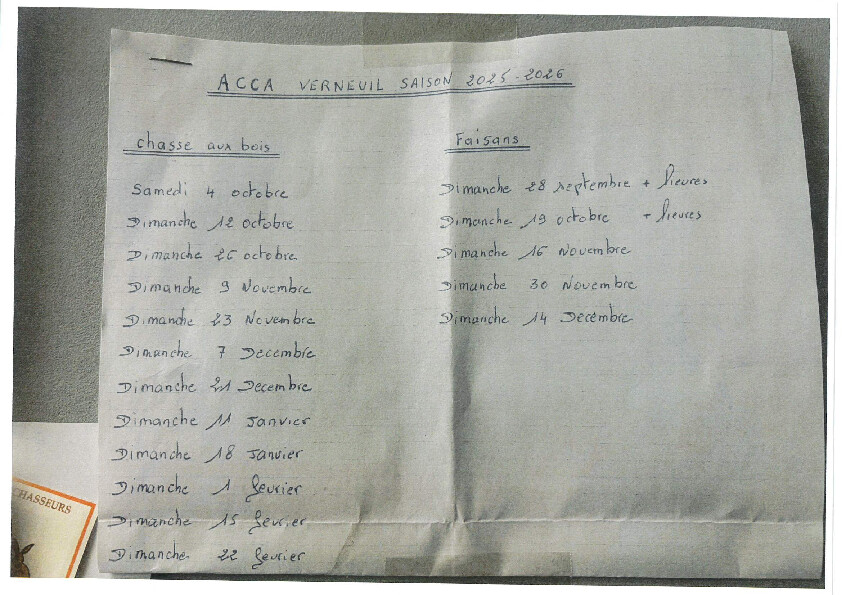 ACCA VERNEUIL SAISON 2025-2026
chasse aux bois
Samedi 4 octobre
Dimanche 12 octobre
Dimanche 26 octobre
Dimanche 9 Novembre
Dimanche 23 Novembre
Dimanche 7 Decembre
Dimanche 21 Decembre
Dimanche 11 Janvier
Dimanche 18 Janvier
Dimanche 1 fevrier
Dimanche 15 fevrier
Dimanche 22 fevrier
Faisans
Dimanche 28 septembre + lievres
Dimanche 19 octobre + lievres
Dimanche 16 Novembre
Dimanche 30 Novembre
Dimanche 14 Decembre
CHASSEURS